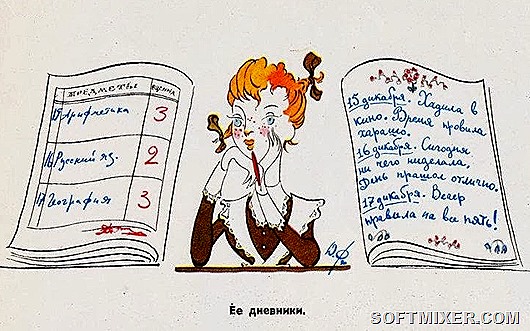 ПРЕДМЕТЫ ОЦЕНКА
15 Арифметика 3
16 Русский яз. 2
17 География 3
15 дикабря. Хадила в
кино. Время провила
харашо.
16 дикабря. Сигодня
ни чего ниделала,
День прашол отлично.
17 дикабря. Вечер
правила на все пять!
Ее дневники.
SOFTMIXER.COM